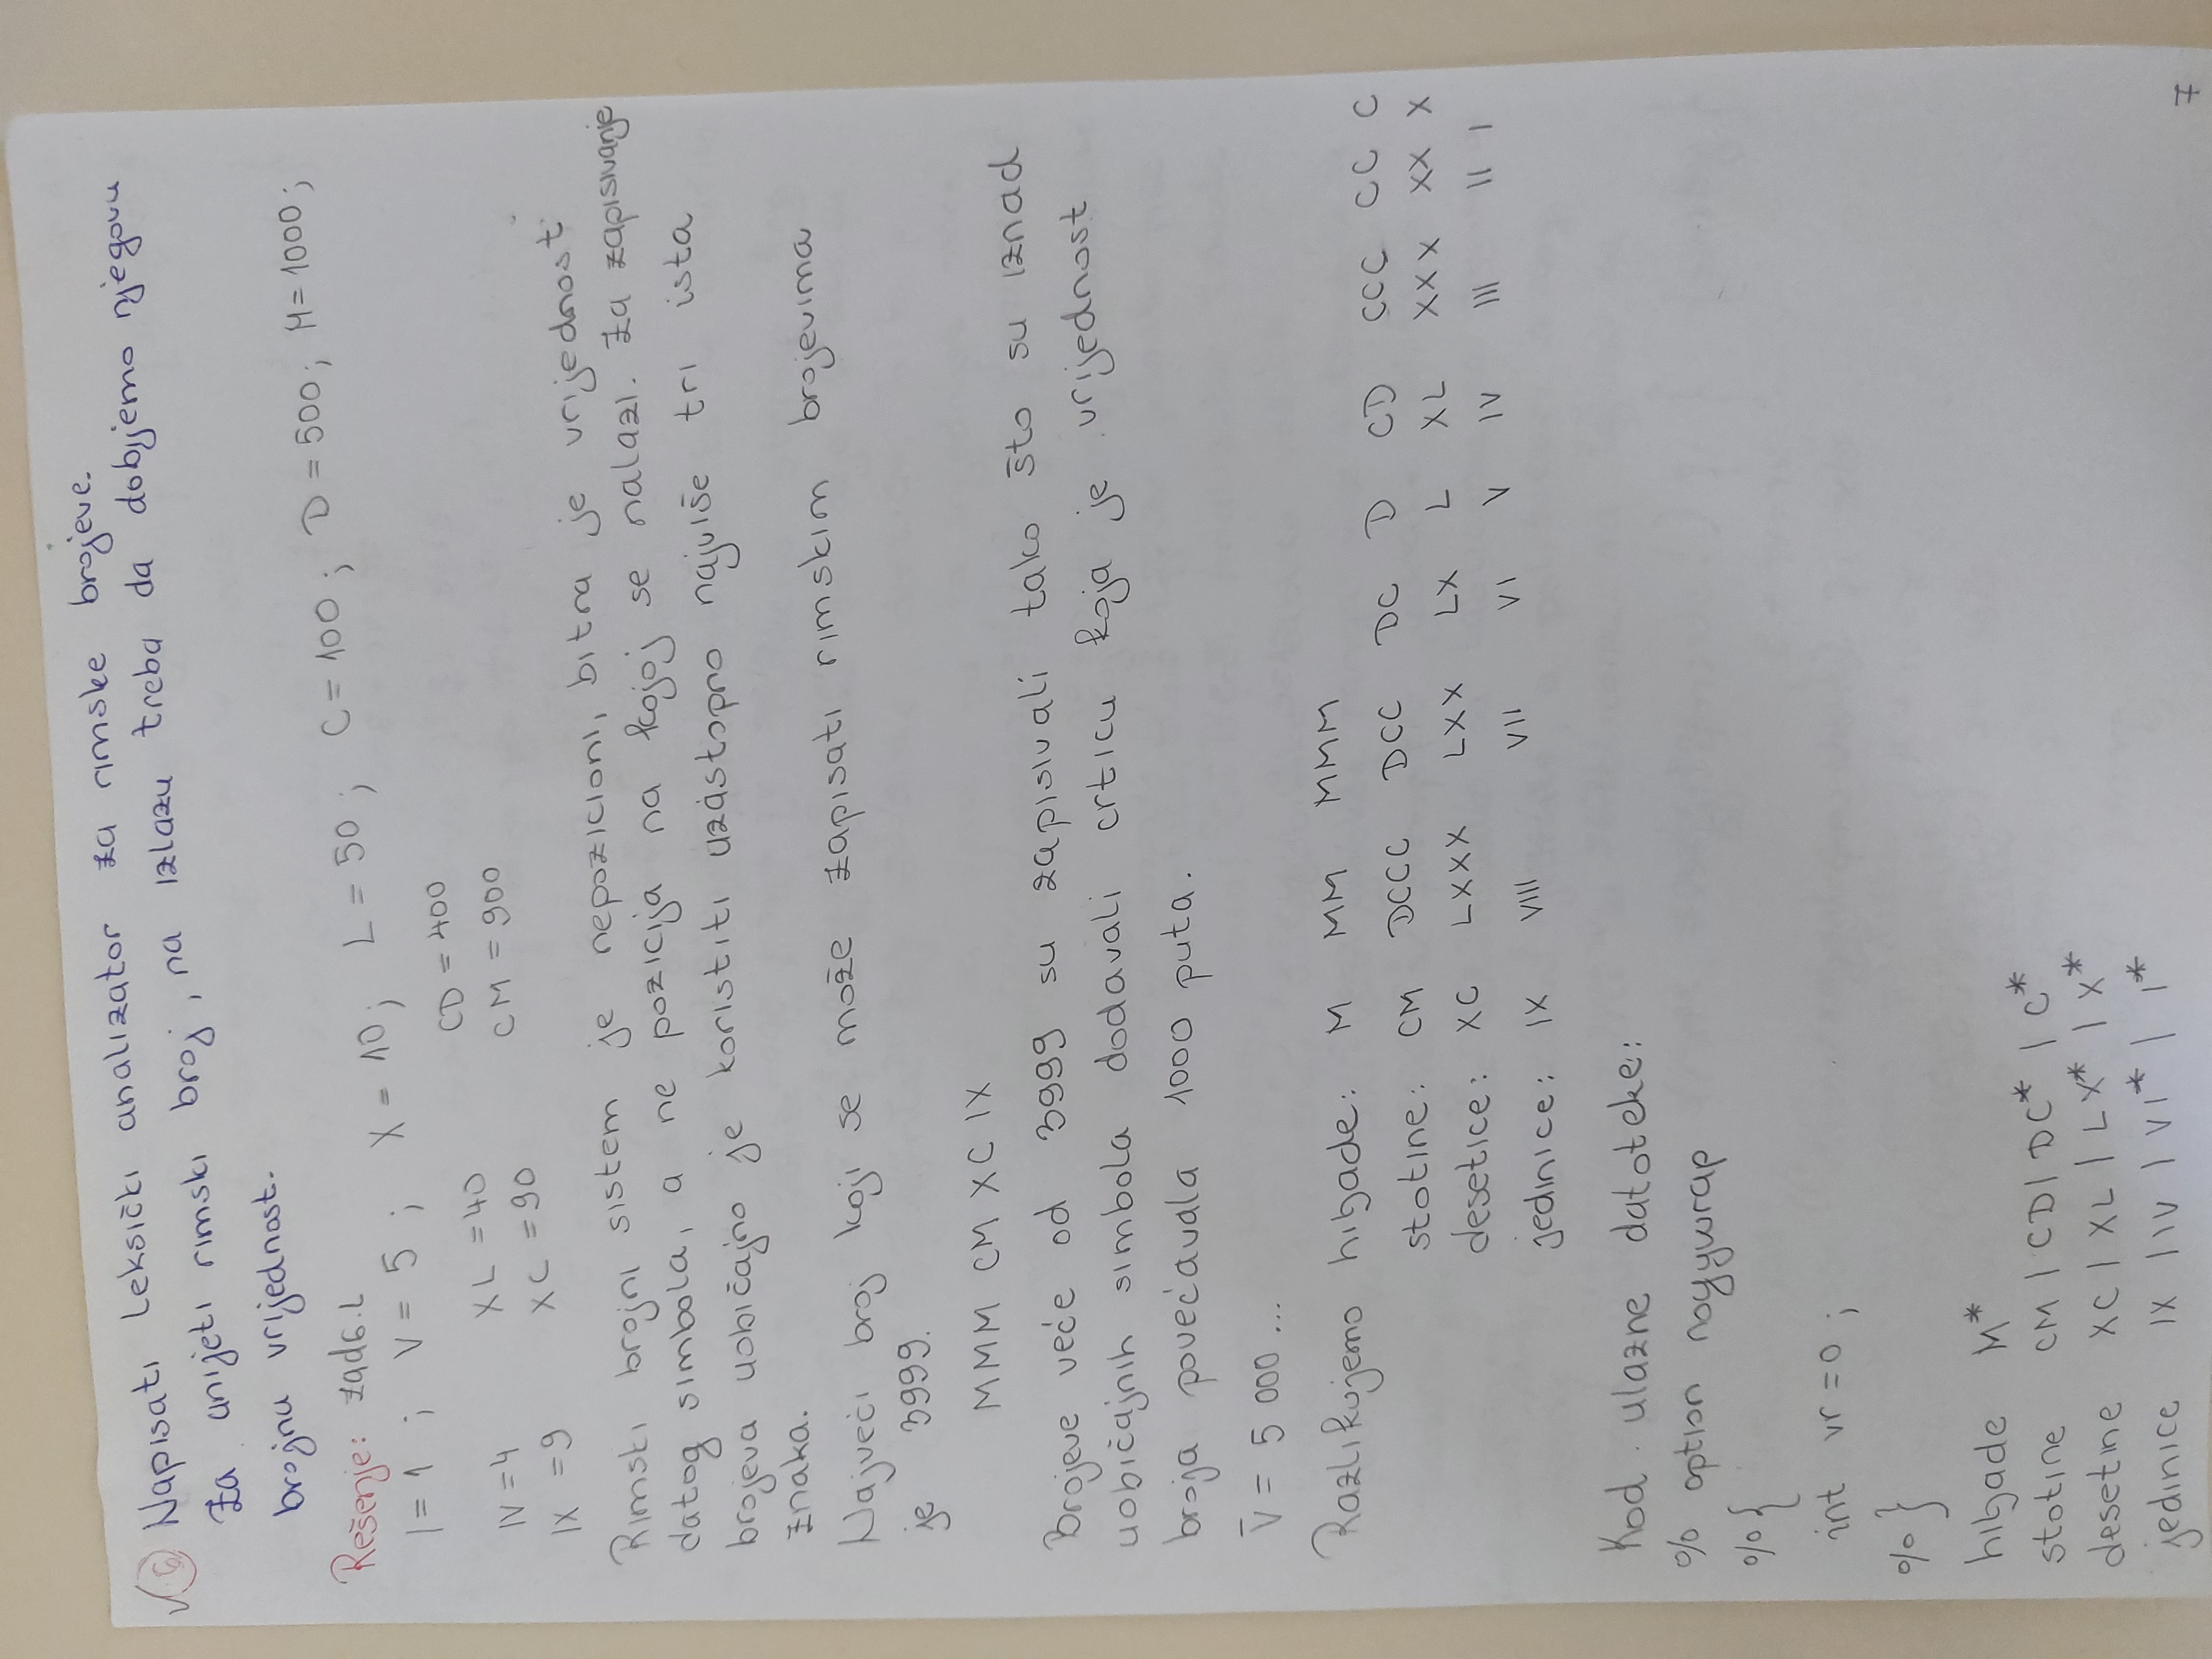 6 Napisati leksički analizator za rimske brojeve.
Za unijeti rimski broj, na izlazu treba da dobijemo njegovu
brojnu vrijednost.
Rešenje: zad6.l
I=1 ; V=5 ; X=10; L=50; C=100; D=500; M=1000;
IV=4 XL=40 CD=400
IX=9 XC=90 CM=900
Rimski brojni sistem je nepozicioni, bitna je vrijednost
datog simbola, a ne pozicija na kojoj se nalazi. Za zapisivanje
brojeva uobičajno je koristiti uzastopno najviše tri ista
znaka.
Najveći broj koji se može zapisati rimskim brojevima
je 3999.
MMM CM XC IX
Brojeve veće od 3999 su zapisivali tako što su iznad
uobičajnih simbola dodavali crticu koja je vrijednost
broja povećavala 1000 puta.
V̄ = 5 000 ...
Razlikujemo hiljade: M MM MMM
stotine: CM DCCC DCC DC D CD CCC CC C
desetice: XC LXXX LXX LX L XL XXX XX X
jedinice: IX VIII VII VI V IV III II I
Kod ulazne datoteke:
% option noyywrap
%{
int vr=0 ;
%}
hiljade M*
stotine CM | CD | DC* | C*
desetine XC | XL | LX* | X*
jedinice IX | IV | VI* | I*
7